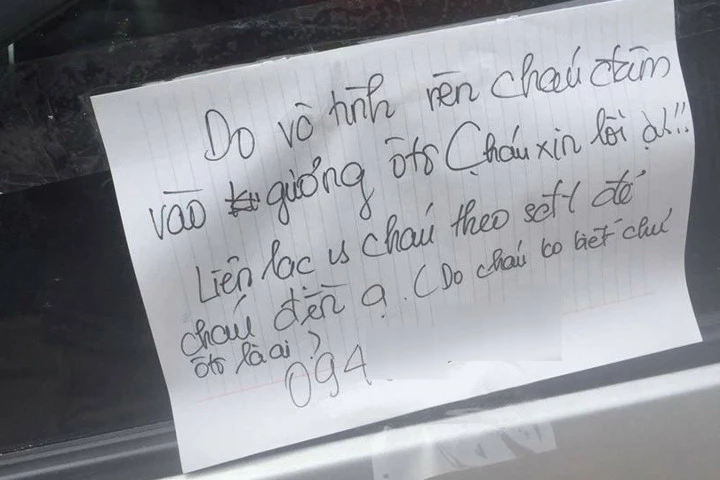 Do vô tình nên cháu đâm
vào gương ôtô Cháu xin lỗi ạ!!
Liên lạc vs cháu theo sđt để
cháu đền ạ. (Do cháu ko biết chủ
ôtô là ai?
094